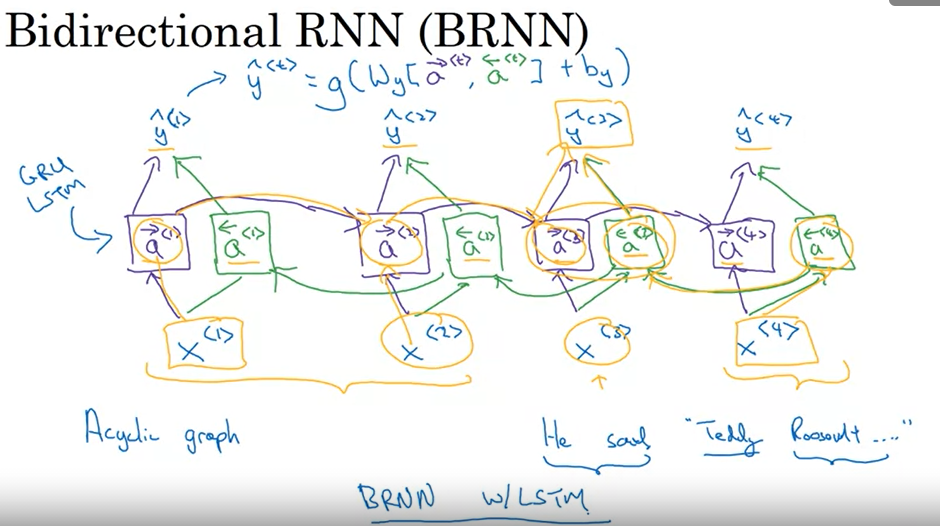 Bidirectional RNN (BRNN)
ŷ<t> = g(Wy[a→<t>, a←<t>] + by)
ŷ<1> ŷ<2> ŷ<3> ŷ<4>
GRU
LSTM
a→<1> a←<1> a→<2> a→<3> a→<4> a←<4>
x<1> x<2> x<3> x<4>
Acyclic graph He said "Teddy Roosevelt ...."
BRNN w/LSTM